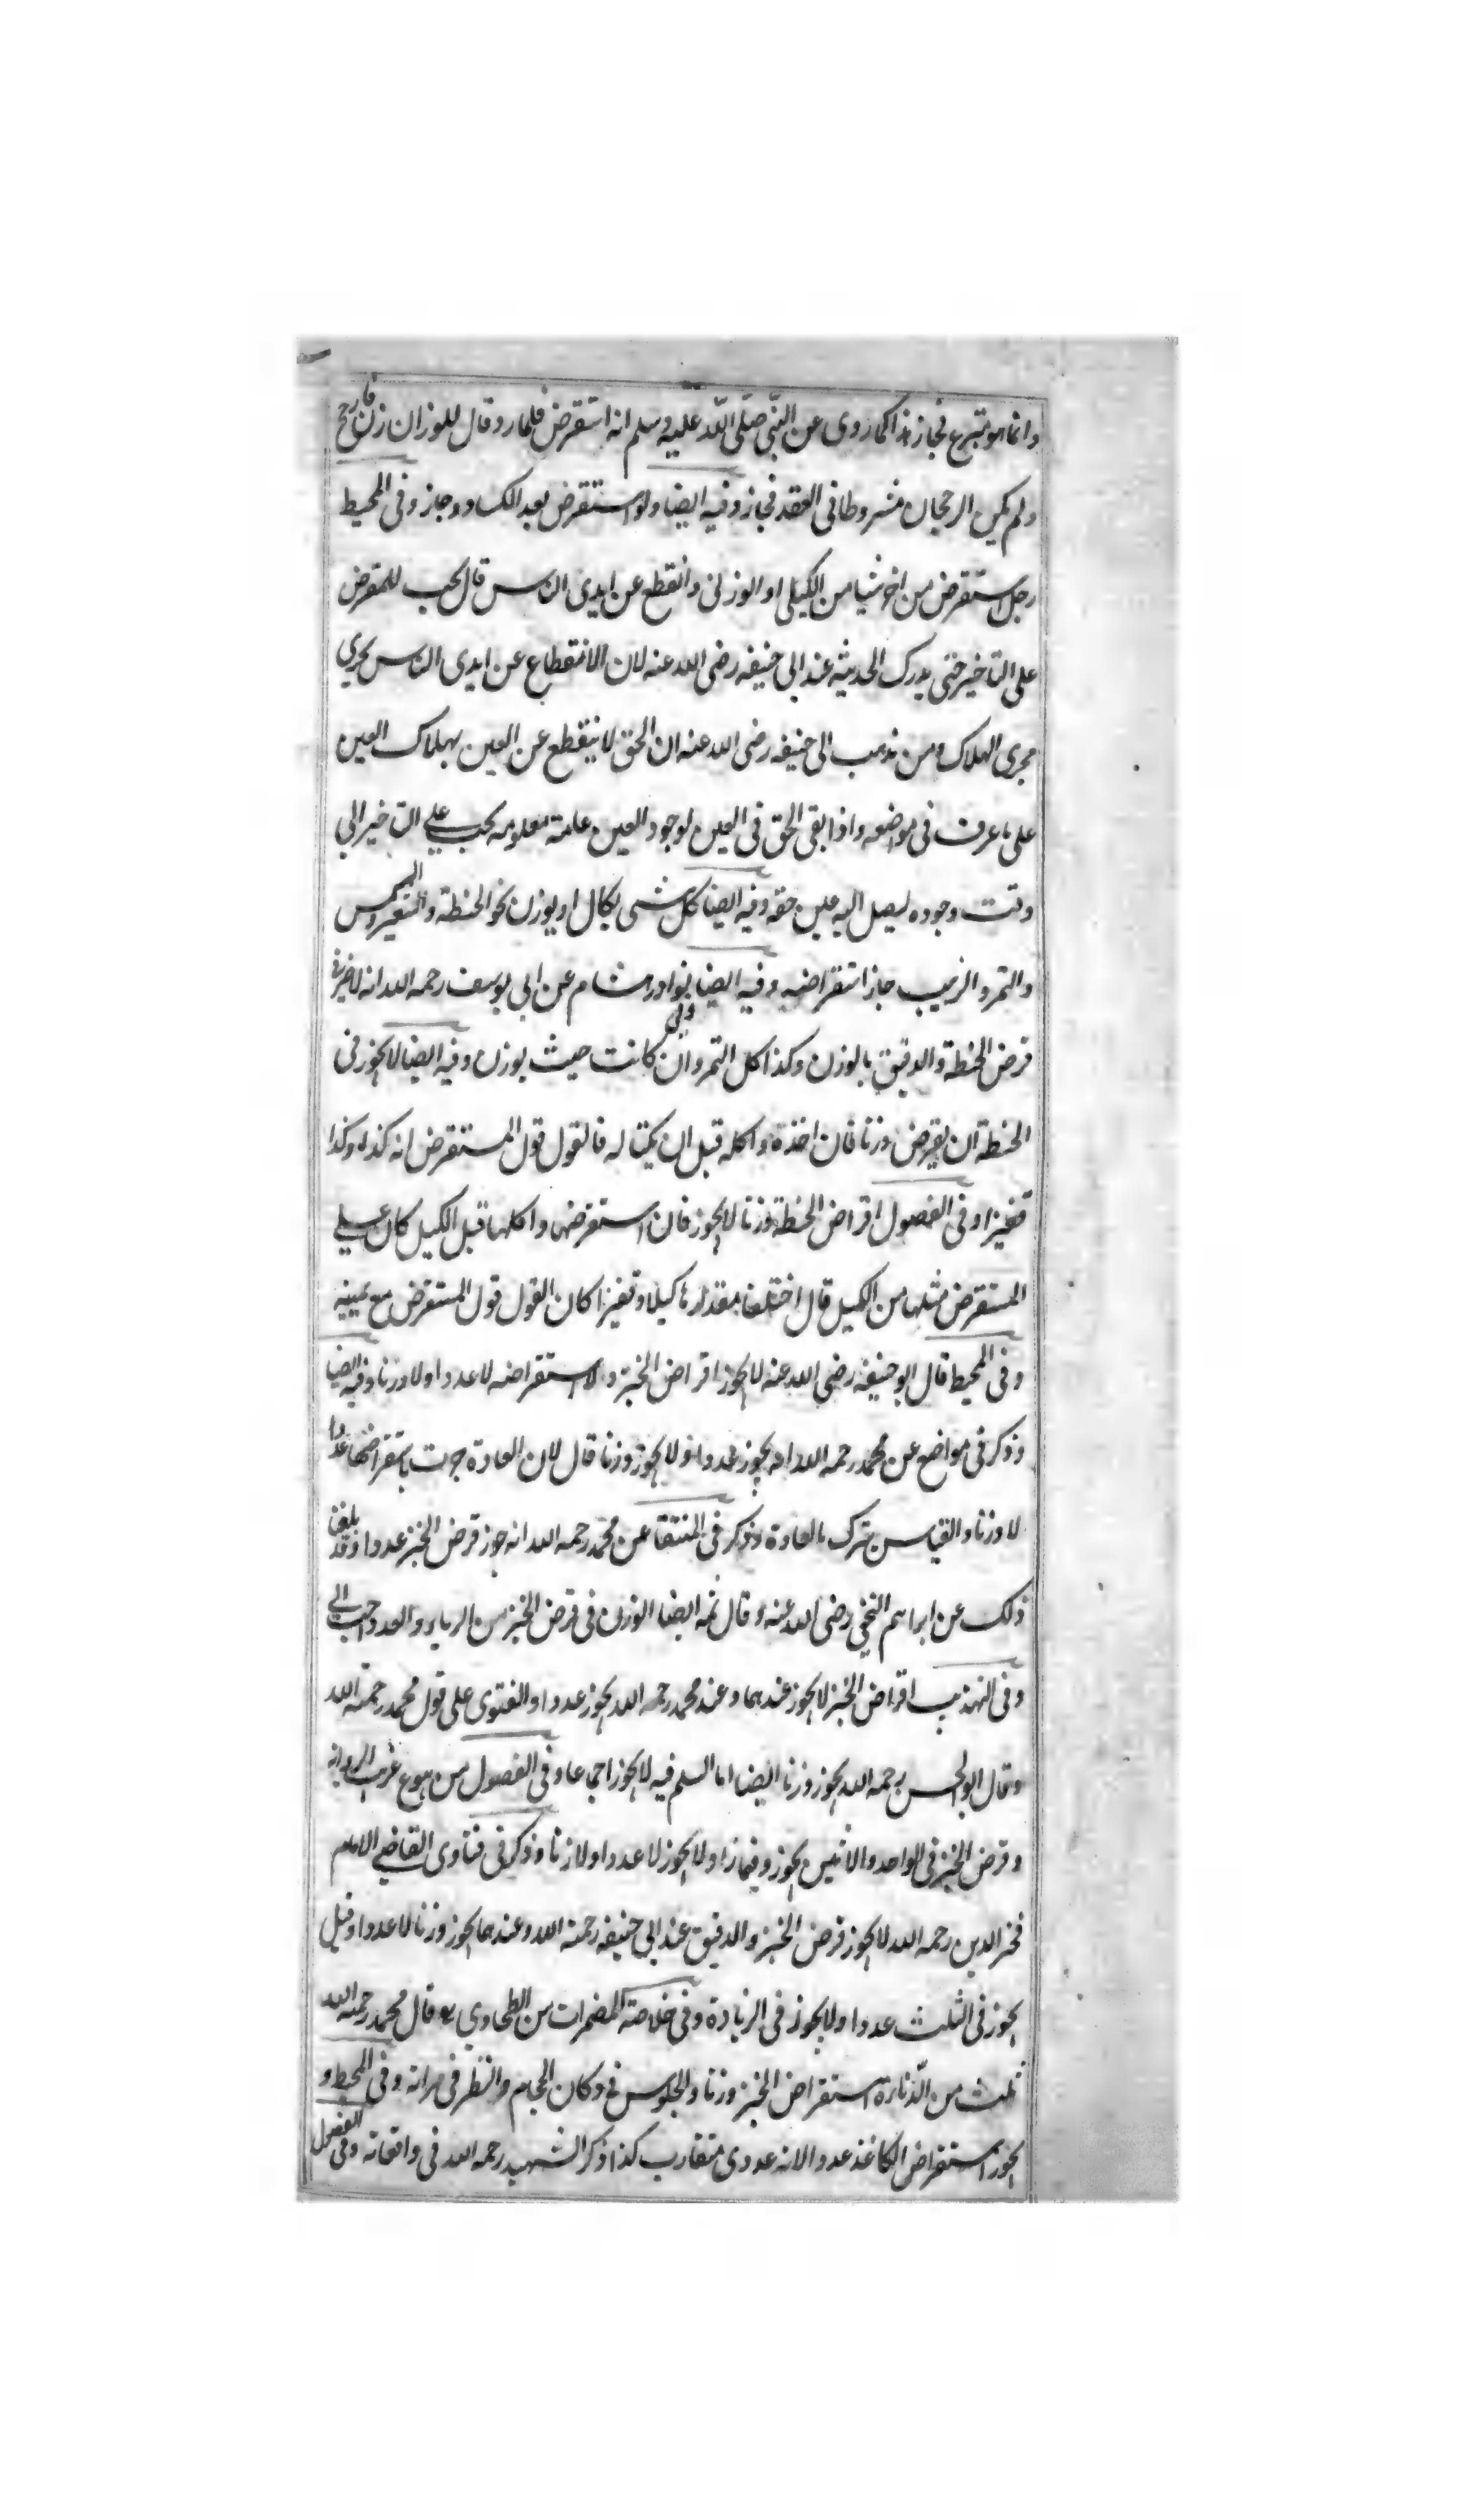 وانما هو تبرع فجاز هذا كما روى عن النبي صلى الله عليه وسلم انه استقرض فلما رد وقال للوزان زن فارجح
ولم يكن الرجحان مشروطا في العقد فجاز وفيه ايضا ولو استقرض بعد الكساد وجاز وفى المحيط
رجل استقرض من اخر شيا من الكيلى او الوزنى وانقطع عن ايدى الناس قال يجب للمقرض
على التاخير حتى يدرك الحديثه عند ابى حنيفه رضى الله عنه لان الانقطاع عن ايدى الناس يجرى
مجرى الهلاك ومن مذهب ابى حنيفه رضى الله عنه ان الحق لا ينقطع عن العين بهلاك العين
على ما عرف في مواضعه واذا بقى الحق فى العين لوجود العين معلومه يجب على التاخير الى
وقت وجوده ليصل اليه عين حقه وفيه ايضا كل شى يكال او يوزن نحو الحنطة والشعير والسمسم
والتمر والزبيب جاز استقراضه وفيه ايضا نوادر هشام عن ابى يوسف رحمه الله انه لا خير فى
قرض الحنطة والدقيق بالوزن وكذا كل التمر وان كانت حيث يوزن وفيه ايضا لا يجوز فى
الحنطة ان يقرض وزنا فان اخذه واكله قبل ان يكتاله فالقول قول المستقرض انه كذا وكذا
قفيزا وفى الفصول اقراض الحنطة وزنا لا يجوز فان استقرضها واكلها قبل الكيل كان على
المستقرض مثلها من الكيل قال اختلفا بمقدارها كيلا وقفيزا كان القول قول المستقرض مع يمينه
وفى المحيط قال ابو حنيفه رضى الله عنه لا يجوز اقراض الخبز ولا استقراضه لا عددا ولا وزنا وفيه ايضا
وذكر فى مواضع عن محمد رحمه الله انه يجوز عددا ولا يجوز وزنا قال لان العادة جرت باستقراضها عددا
لا وزنا والقياس يترك بالعادة وذكر فى المنتقا عن محمد رحمه الله انه جوز قرض الخبز عددا وقد بلغنا
ذلك عن ابراهيم النخعي رضى الله عنه وقال ثمه ايضا الوزن فى قرض الخبز من الرياء والعدد احب الى
وفى التهذيب اقراض الخبز لا يجوز عندهما وعند محمد رحمه الله يجوز عددا والفتوى على قول محمد رحمة الله
وقال ابو الحسن رحمه الله يجوز وزنا ايضا اما السلم فيه لا يجوز اجماعا وفى الفصول من بيوع غريب الروايه
وقرض الخبز فى الواحد والاثنين يجوز وفيما زاد لا يجوز لا عددا ولا وزنا وذكر فى فتاوى القاضى الامام
فخر الدين رحمه الله لا يجوز قرض الخبز والدقيق عند ابى حنيفه رحمة الله وعندهما يجوز وزنا لا عددا وقيل
يجوز فى الثلث عددا ولا يجوز فى الزيادة وفى خلاصة المضمرات من الطحاوي قال محمد رحمة الله
ثلث من الدناءة استقراض الخبز وزنا والجلوس فى دكان الحجام والنظر فى مرآته وفى المحيط و
يجوز استقراض الكاغذ عددا لانه عددى متقارب كذا ذكر الشهيد رحمه الله فى واقعاته وفى الفصول